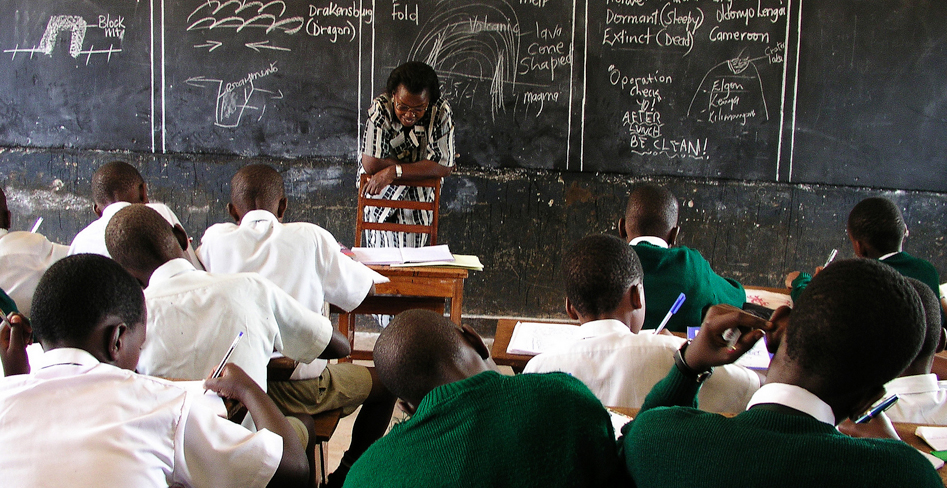 Block
Mt
Drakensburg
(Dragon)
Fold
Volcanic
Lava
Cone
Shaped
magma
Dormant (Sleepy)
Extinct (Dead)
Oldonyo Lengai
Cameroon
"Operation
Check
AFTER
LUNCH
BE CLEAN!
Crater
lake
Elgon
Kenya
Kilimanjaro